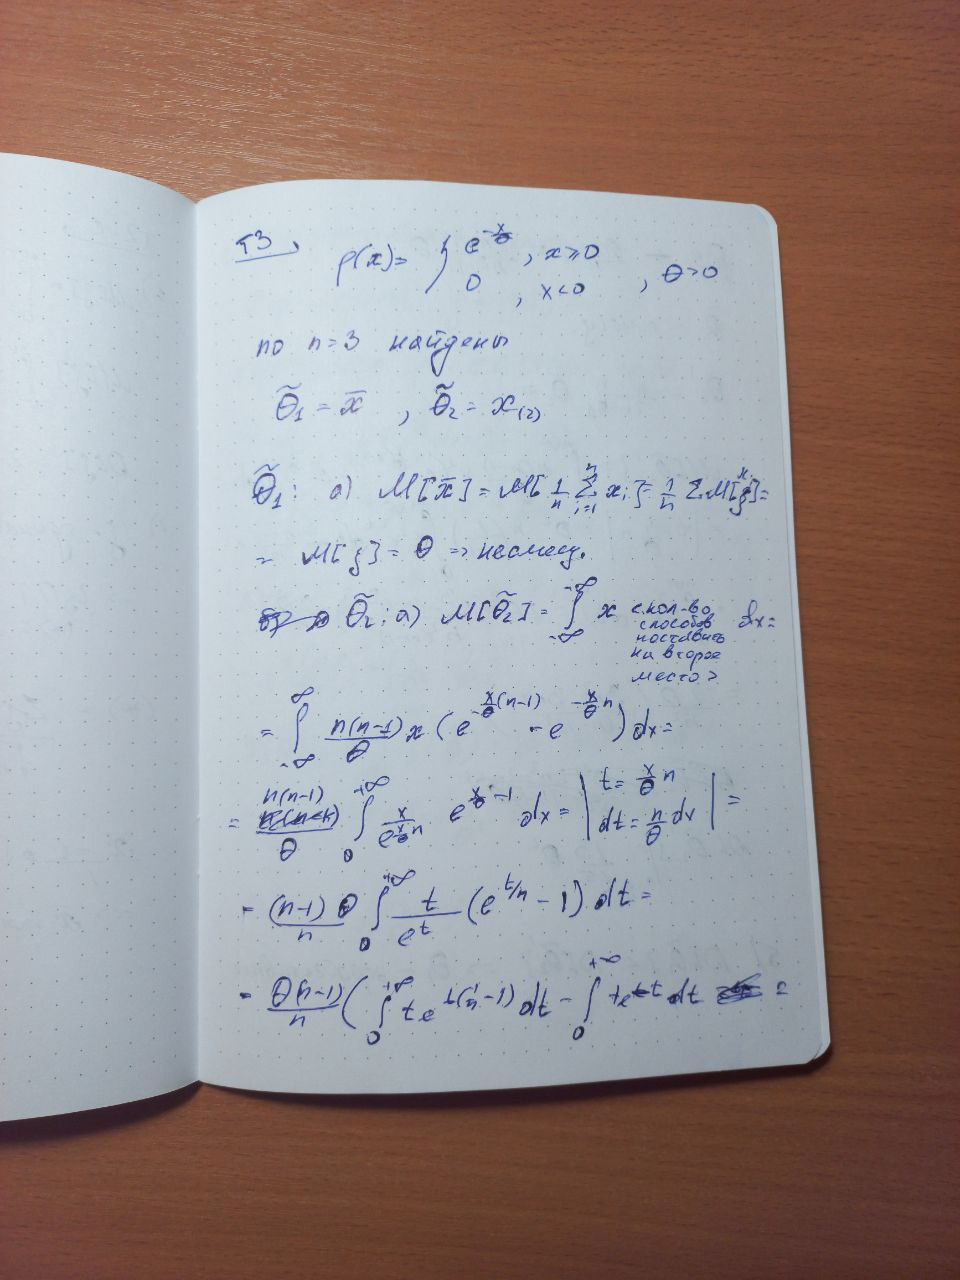 T3.
p(x) = { e^{-x/θ}, x ≥ 0
0, x < 0, θ > 0
по n = 3 найдены
θ̃₁ = x̄, θ̃₂ = x₍₂₎
θ̃₁: а) M[x̄] = M[1/n Σ_{i=1}^{n} x_i] = 1/n Σ M[ξ] =
= M[ξ] = θ ⇒ несмещ.
θ̃₂: а) M[θ̃₂] = ∫_{-∞}^{+∞} x <кол-во способов поставить на второе место> dx =
= ∫_{-∞}^{∞} n(n-1)/θ x (e^{-x/θ (n-1)} - e^{-x/θ n}) dx =
= n(n-1)/θ ∫_0^{+∞} x/e^{x/θ n} e^{x/θ} - 1 dx = | t = x/θ n
dt = n/θ dx | =
= (n-1)θ/n ∫_0^{+∞} t/e^t (e^{t/n} - 1) dt =
= θ(n-1)/n ( ∫_0^{+∞} t e^{t(1/n - 1)} dt - ∫_0^{+∞} t e^{-t} dt =